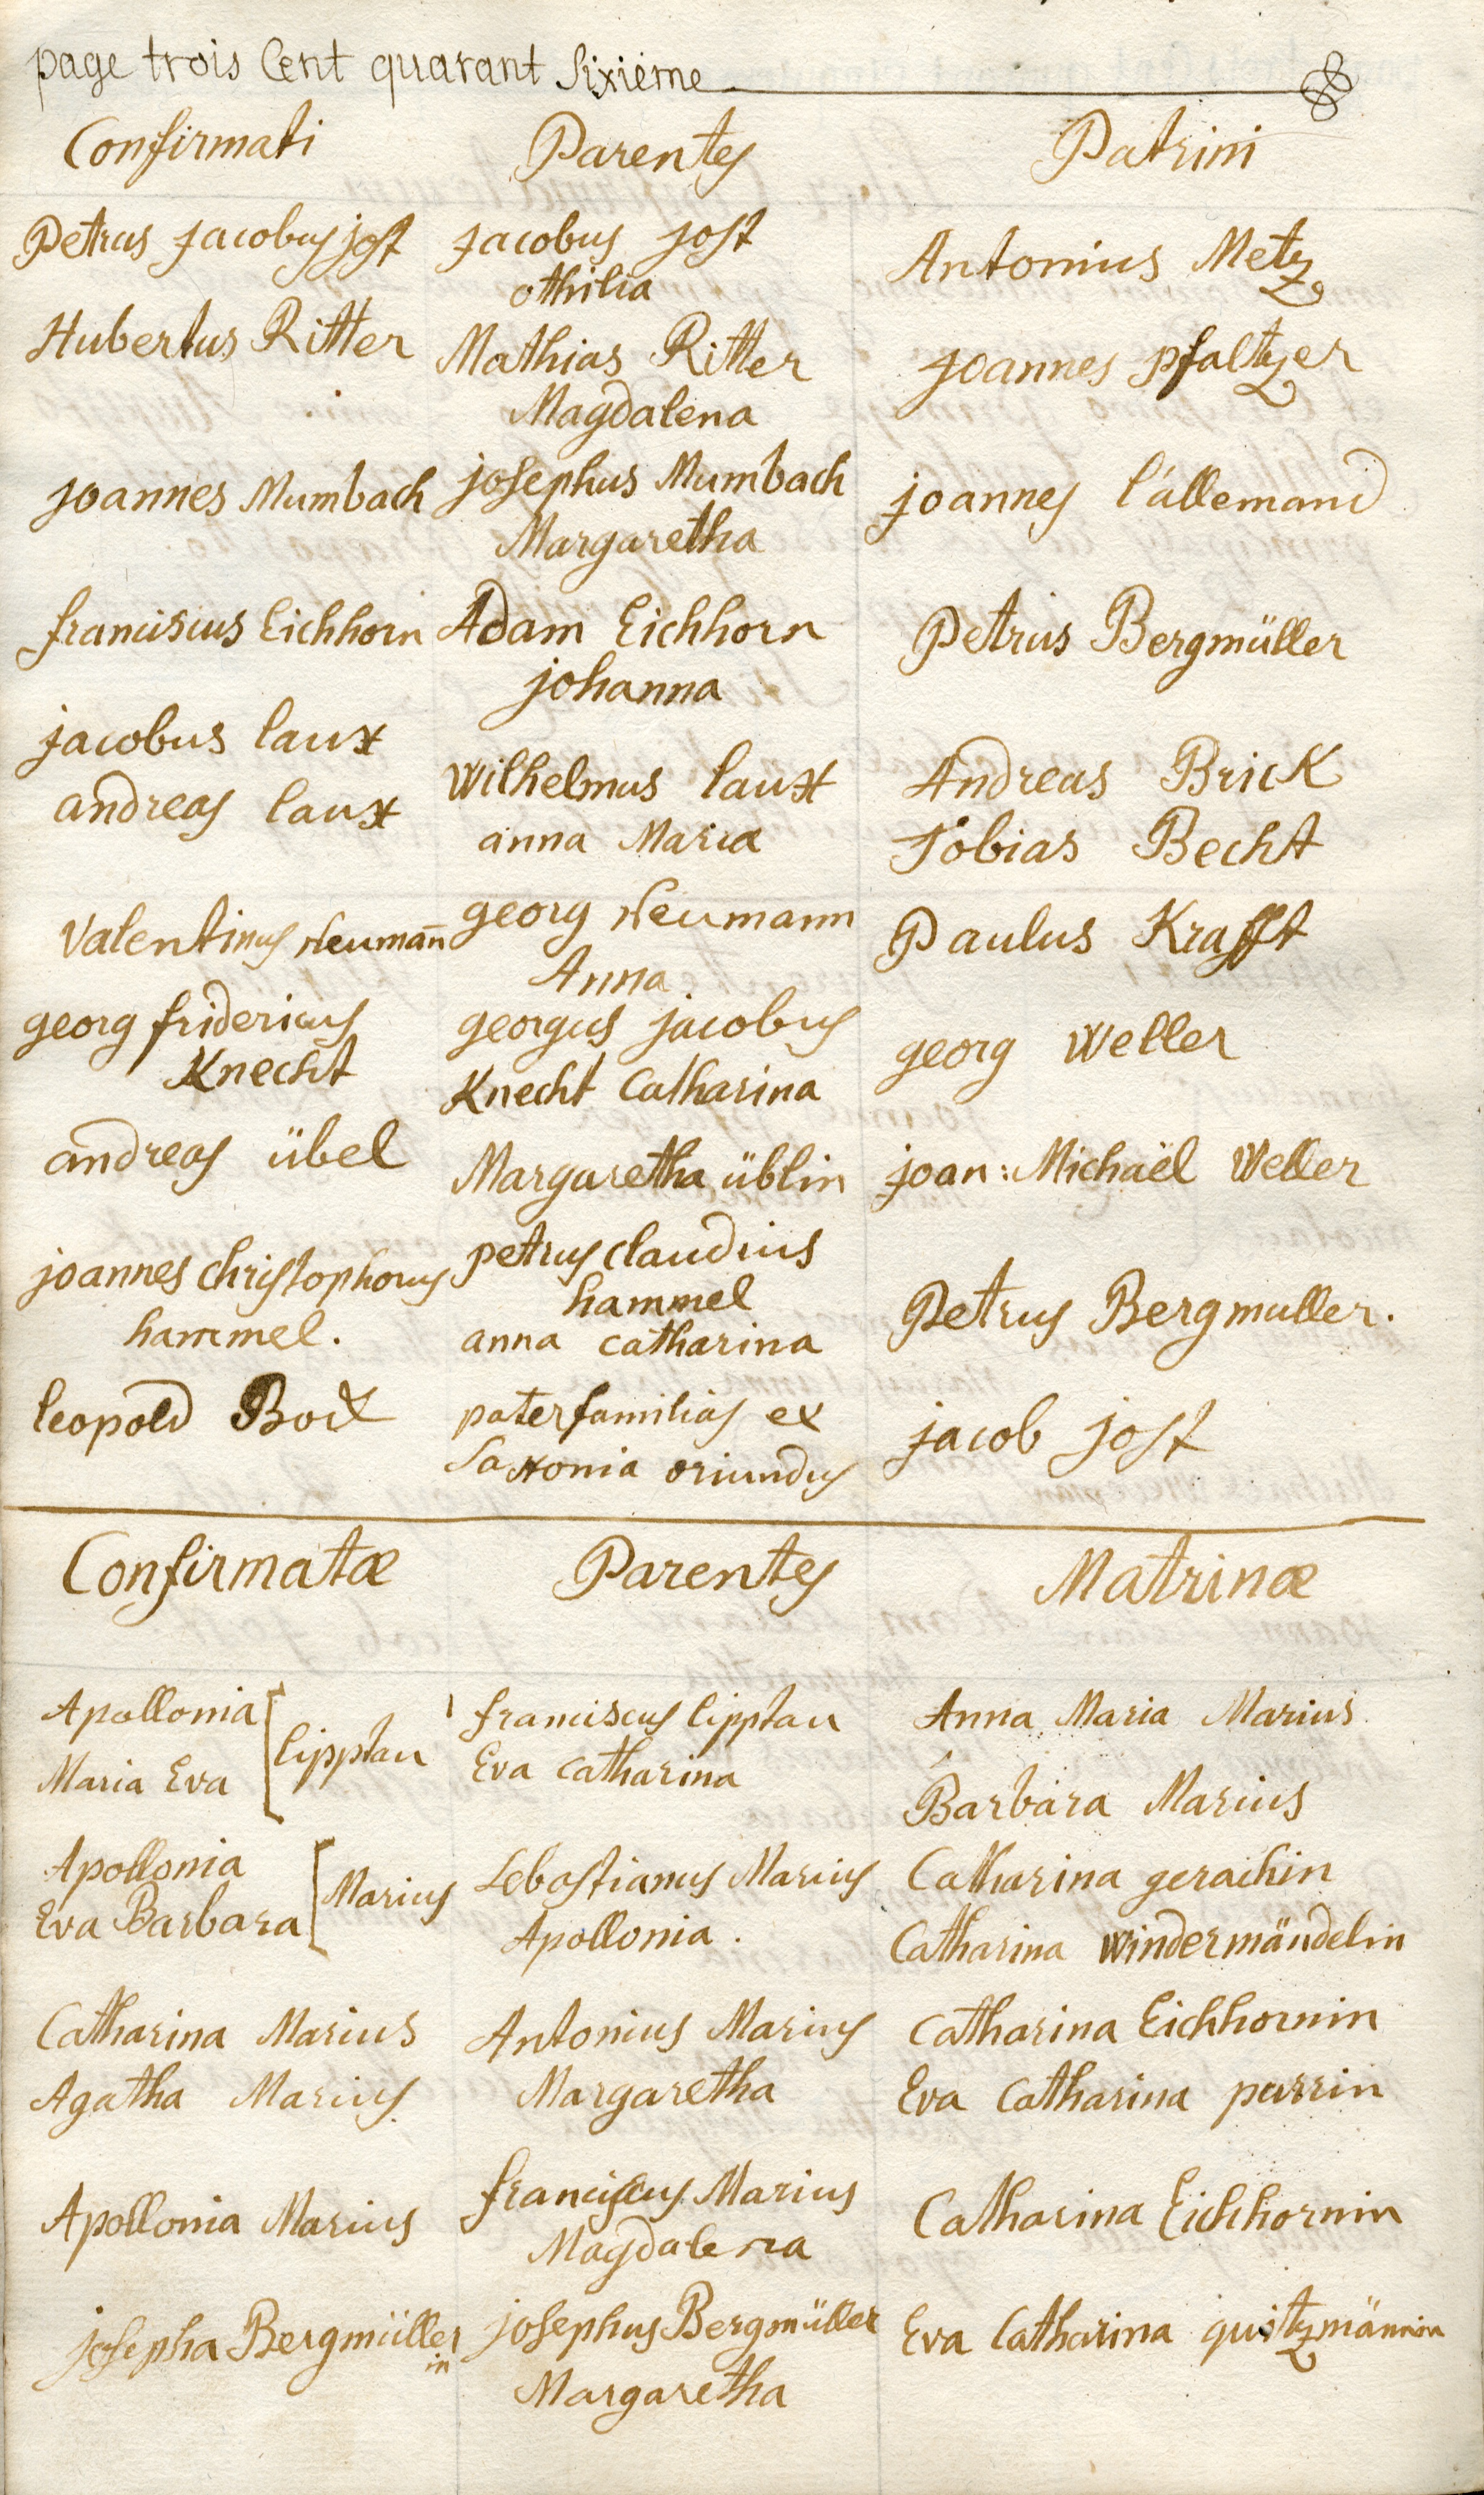 page trois Cent quarant Sixiéme
Confirmati Parentes Patrini
Petrus jacobus jost jacobus jost Antonius Metz
othilia
Hubertus Ritter Mathias Ritter joannes pfaltzer
Magdalena
joannes Mumbach josephus Mumbach joannes l'allemand
Margaretha
franciscus Eichhorn Adam Eichhorn Petrus Bergmüller
johanna
jacobus laux Wilhelmus laux Andreas Brick
andreas laux anna Maria Tobias Becht
Valentinus Neumañ georg Neumann Paulus Krafft
Anna
georg fridericus georgus jacobus georg Weller
Knecht Knecht Catharina
andreas übel Margaretha üblin joan: Michaël Weller
joannes christophorus petrus claudius Petrus Bergmuller.
hammel. hammel
anna catharina
leopold Bock paterfamilias ex jacob jost
Saxonia oriundus
Confirmatæ Parentes Matrinæ
Apollonia lipptau franciscus lipptau Anna Maria Marius
Maria Eva Eva catharina Barbara Marius
Apollonia Marius Sebastianus Marius Catharina
Eva Barbara Apollonia. Catharina windermändelin
Catharina Marius Antonius Marius Catharina Eichhornin
Agatha Marius Margaretha Eva Catharina
Apollonia Marius franciscus Marius Catharina Eichhornin
Magdalena
josepha Bergmüller josephus Bergmüller Eva Catharina quitzmännin
in Margaretha